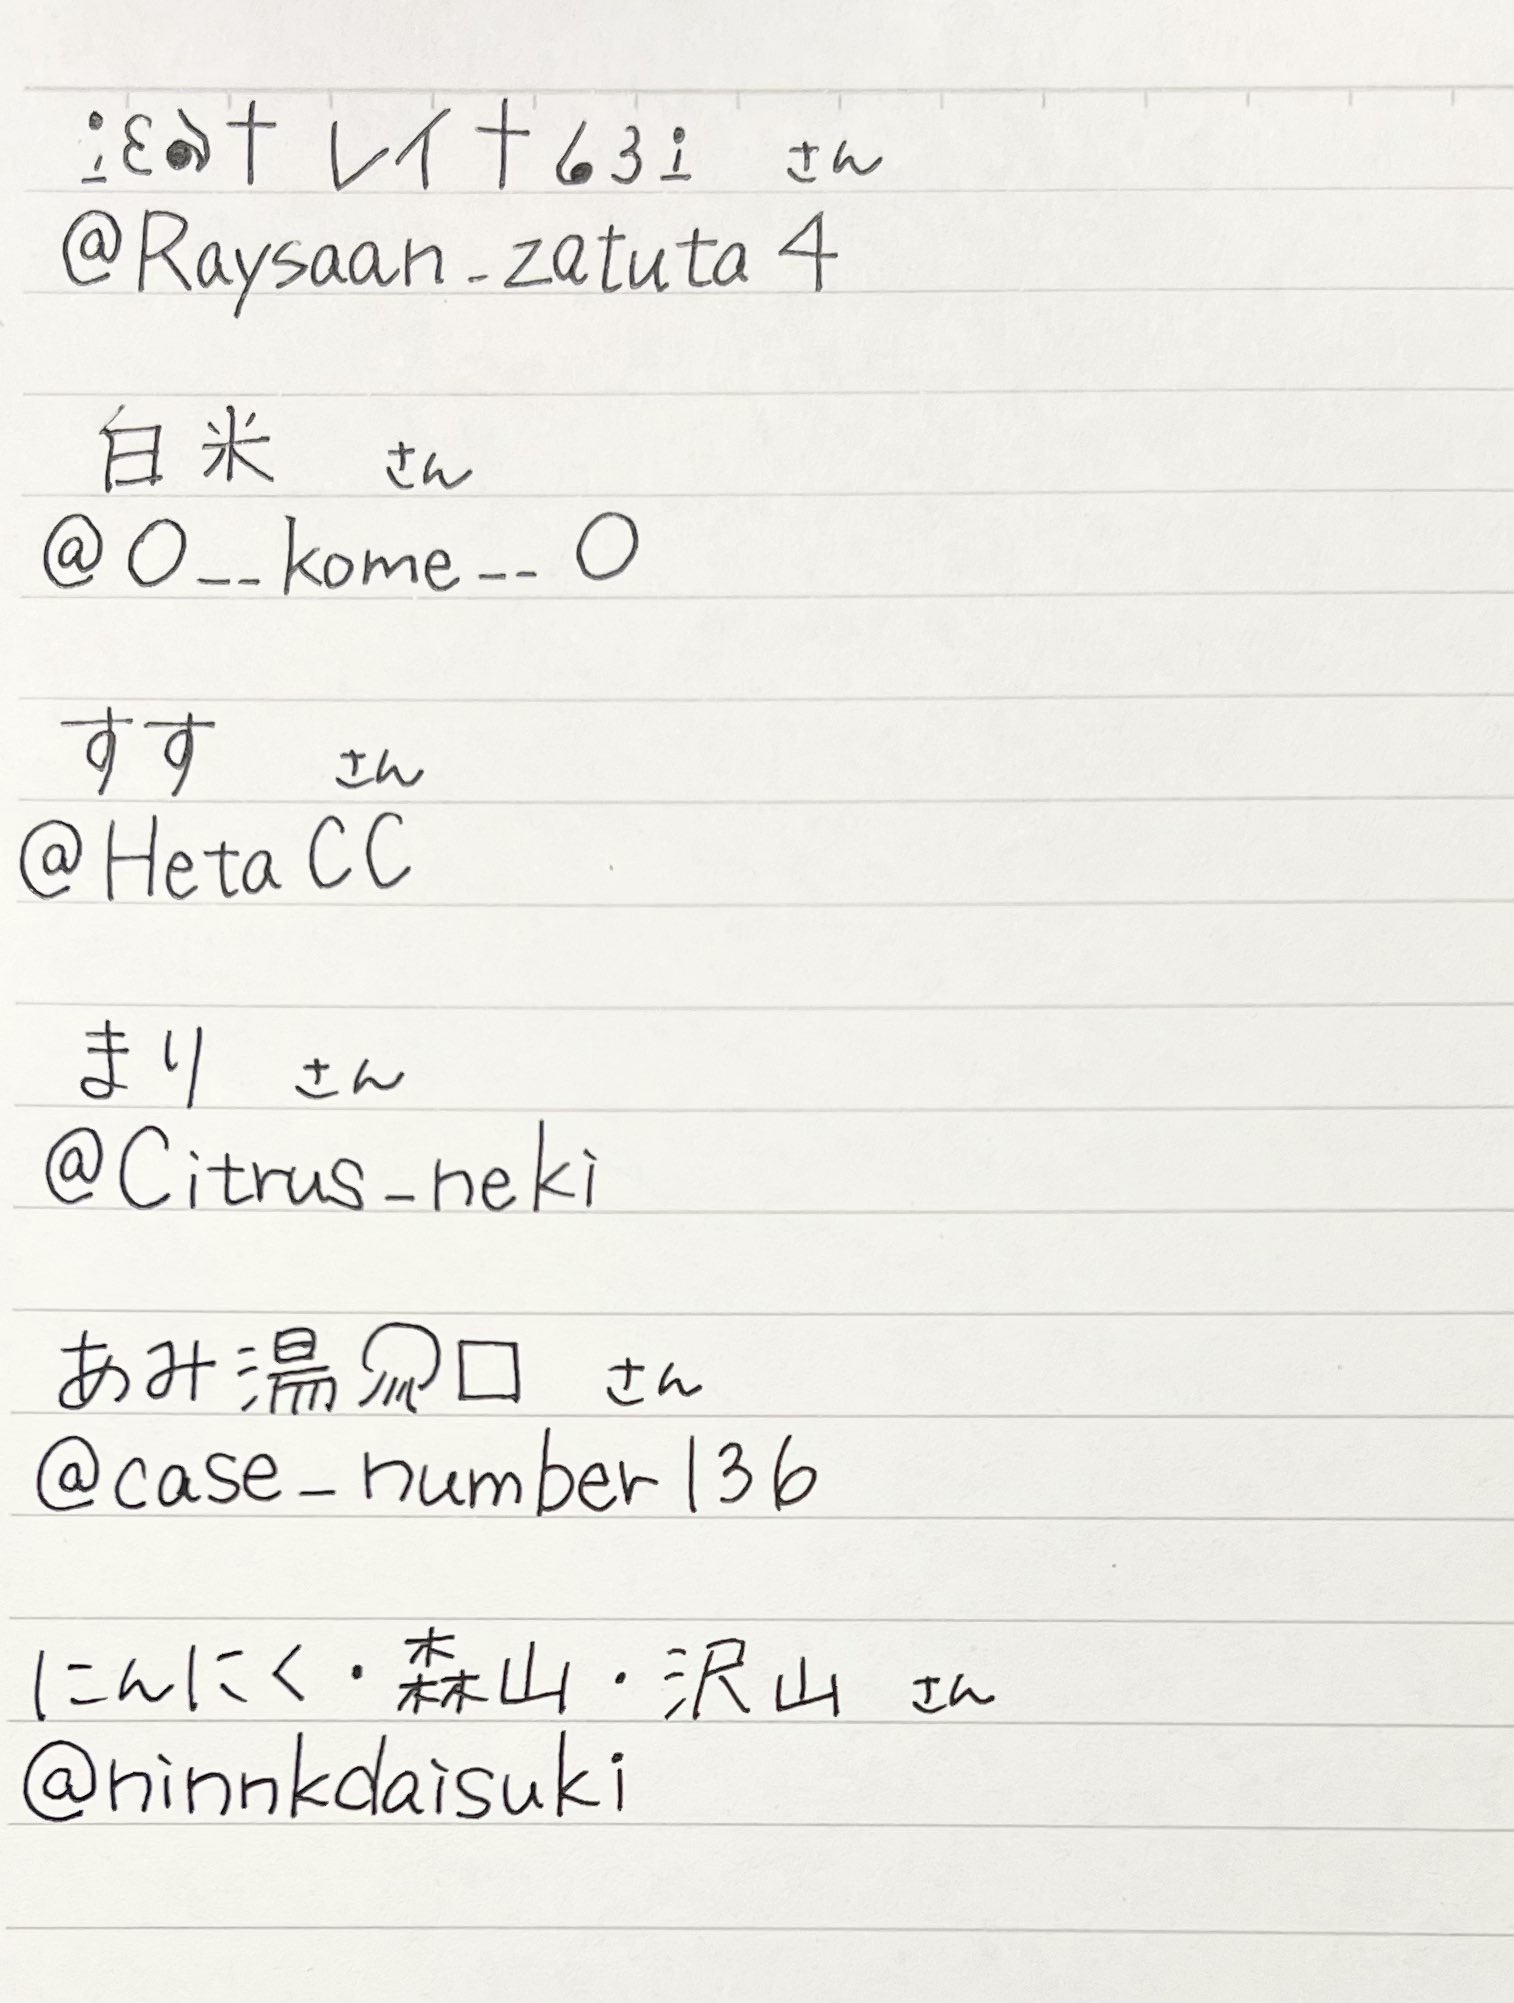 レイ さん
@Raysaan_zatuta4
白米 さん
@O__kome__O
すす さん
@HetaCC
まり さん
@Citrus_neki
あみ湯 口 さん
@case_number136
にんにく・森山・沢山 さん
@ninnkdaisuki